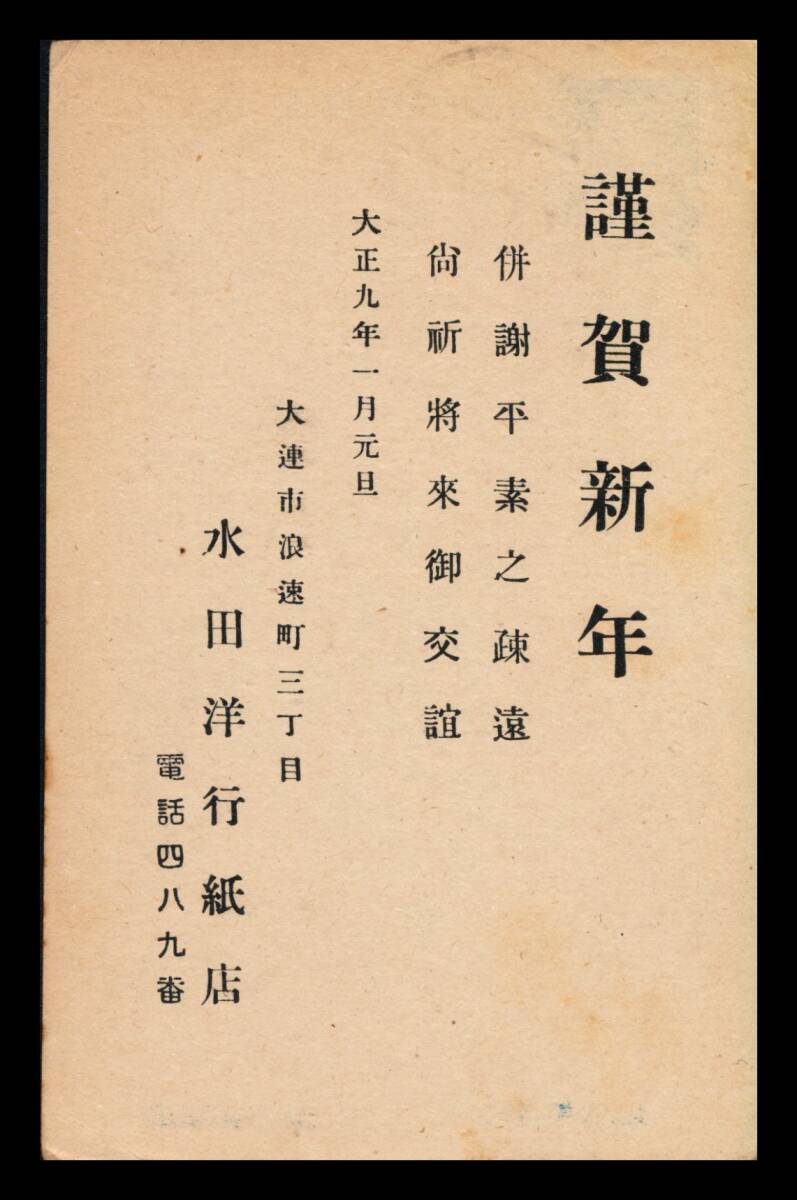 謹賀新年
併謝平素之疎遠
尙祈將來御交誼
大正九年一月元旦
大連市浪速町三丁目
水田洋行紙店
電話四八九番